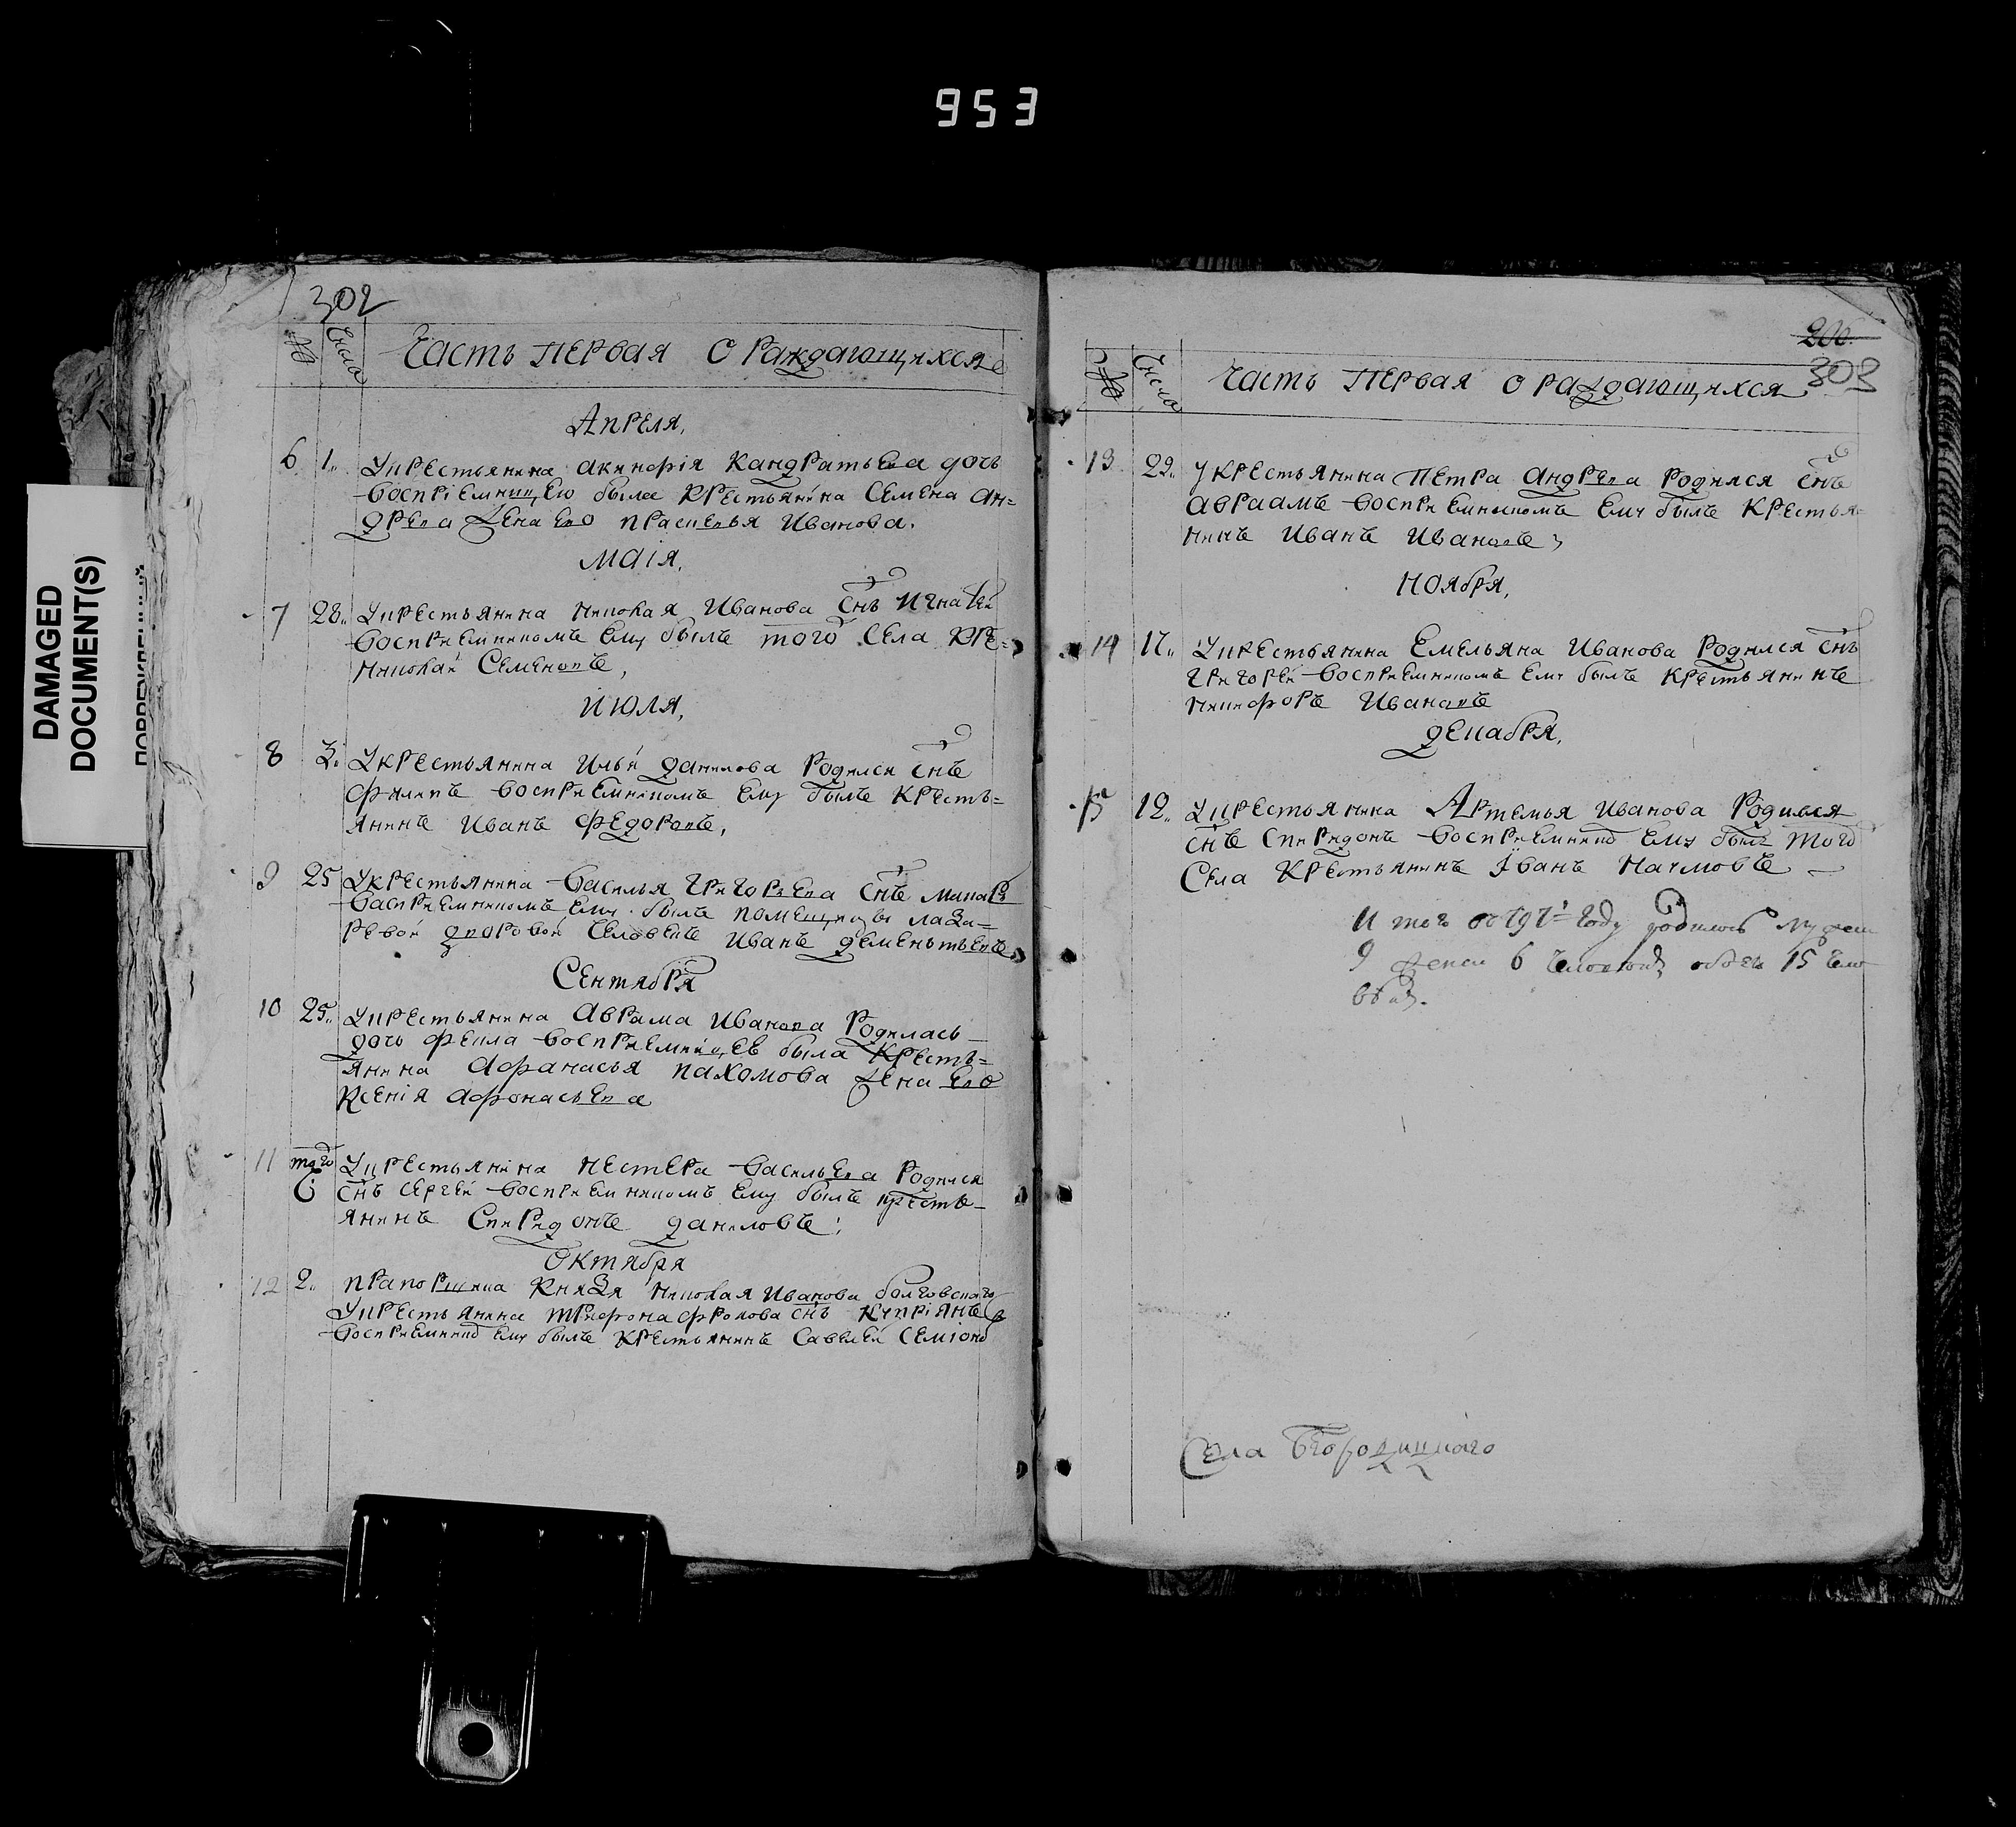 953
DAMAGED
DOCUMENT(S)
302
№ Числа Часть первая о раждающихся
Апреля,
6 1. У крестьянина акинфія кандратьева дочь
воспріемницею была крестьянина Семена ан=
древа жена ево прасковья Иванова.
маія,
7 28. У крестьянина николая Иванова снъ игнатей
восприемникомъ ему былъ того села кре=
николай Семеновъ,
июля,
8 3. У крестьянина ильи данилова родился снъ
филипъ восприемникомъ ему былъ кресть=
янинъ Иванъ федоровъ,
9 25 У крестьянина василья григорьева снъ макаръ
васприемникомъ ему былъ помещицы лаза=
ревой дворовой человекъ иванъ дементьевъ
Сентября
10 25. У крестьянина аврама иванова родилась
дочь фекла восприемницеѣ была кресть=
янина афанасья пахомова жена ево
ксенія афонасьева
11 того У крестьянина нестера васильева родился
снъ сергей восприемникомъ ему былъ кресть=
янинъ Спиридонъ даниловъ;
октября
12 2. прапорщика князя николая иванова
У крестьянина трифона фролова снъ купріянъ
восприемнико ему былъ крестьянинъ савелей семіоно
200
303
№ Числа Часть первая о раждающихся
13 29. У крестьянина петра андрева родился снъ
авраамъ восприемникомъ ему былъ крестья=
нинъ иванъ ивановъ;
ноября,
14 17. У крестьянина емельяна иванова родился снъ
григорей восприемникомъ ему былъ крестьянинъ
никифоръ ивановъ
декабря,
15 12. У крестьянина Артемья иванова родился
снъ спиридонъ восприемнико ему былъ того
села крестьянинъ иванъ наумовъ
И того в 797 году родилось мужеска
9 женска 6 человекъ обоего 15 чело
векъ.
Села Бгородицкаго